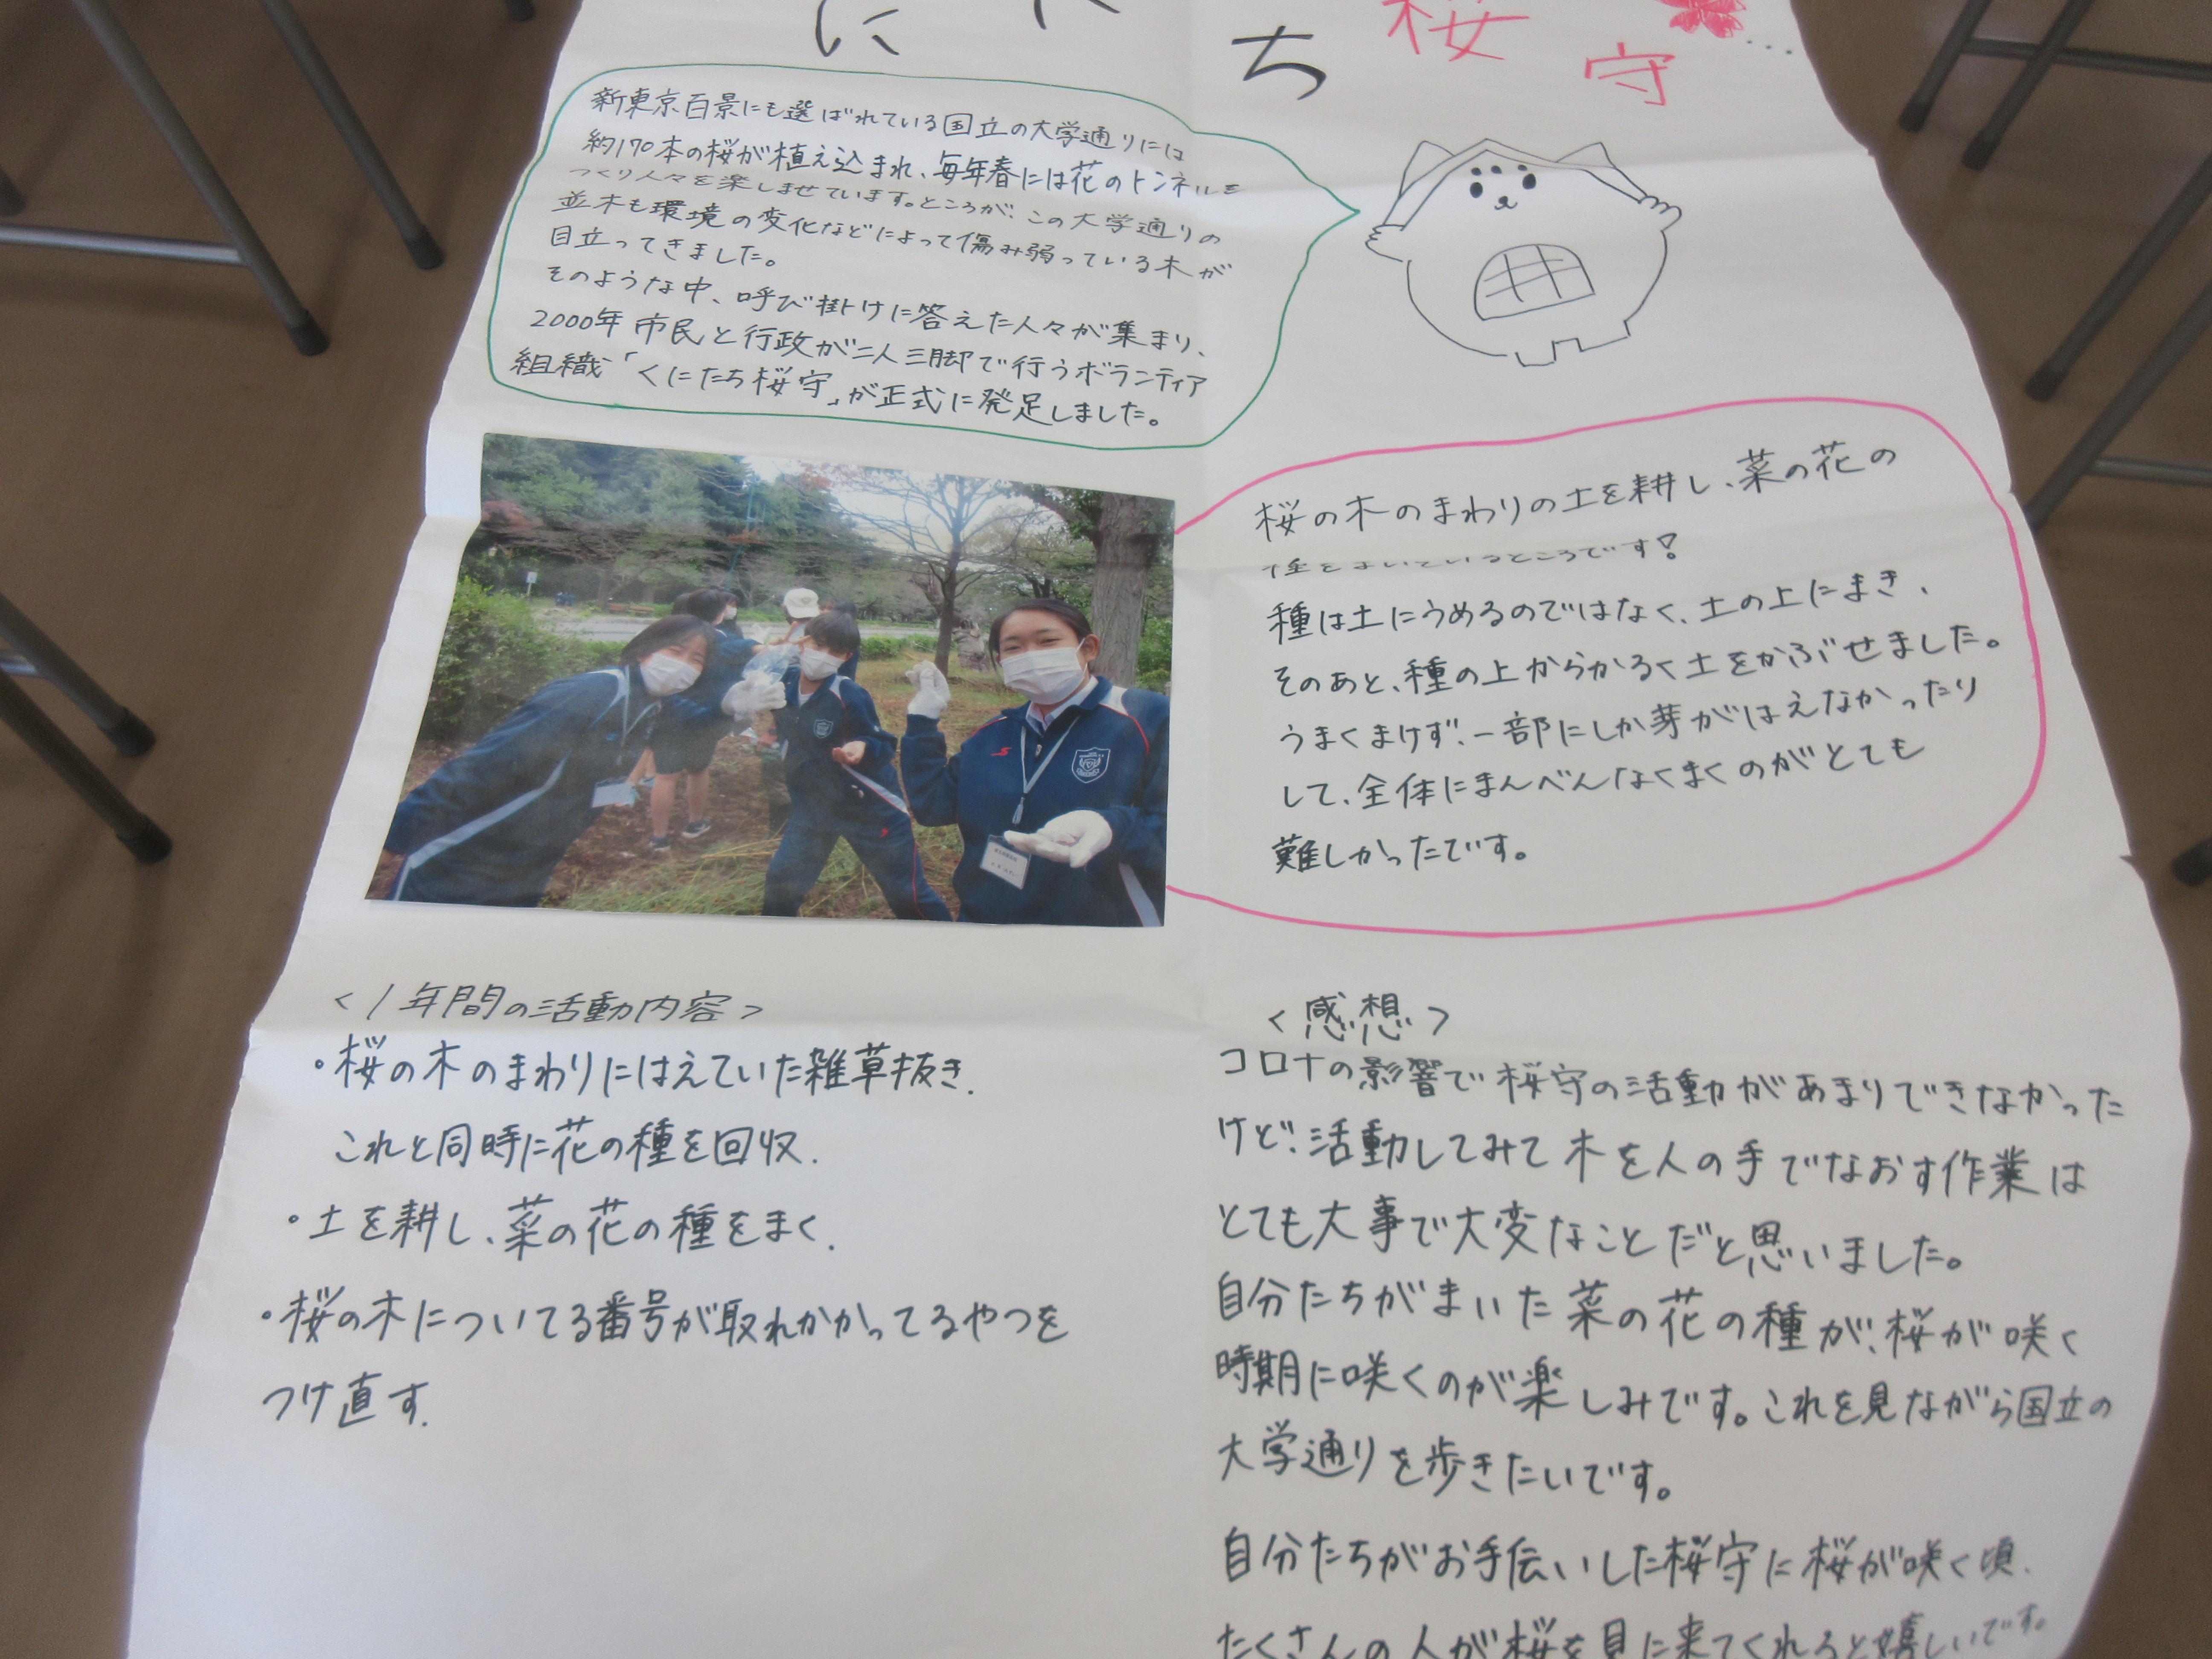 に
ち
桜
守
新東京百景にも選ばれている国立の大学通りには
約170本の桜が植え込まれ、毎年春には花のトンネルを
つくり人々を楽しませています。ところが、この大学通りの
並木も環境の変化などによって傷み弱っている木が
目立ってきました。
そのような中、呼び掛けに答えた人々が集まり、
2000年市民と行政が二人三脚で行うボランティア
組織「くにたち桜守」が正式に発足しました。
桜の木のまわりの土を耕し、菜の花の
種をまいているところです!
種は土にうめるのではなく、土の上にまき、
そのあと、種の上からかるく土をかぶせました。
うまくまけず、一部にしか芽がはえなかったり
して、全体にまんべんなくまくのがとても
難しかったです。
<1年間の活動内容>
・桜の木のまわりにはえていた雑草抜き.
これと同時に花の種を回収.
・土を耕し、菜の花の種をまく.
・桜の木についてる番号が取れかかってるやつを
つけ直す.
<感想>
コロナの影響で桜守の活動があまりできなかった
けど、活動してみて木を人の手でなおす作業は
とても大事で大変なことだと思いました。
自分たちがまいた菜の花の種が、桜が咲く
時期に咲くのが楽しみです。これを見ながら国立の
大学通りを歩きたいです。
自分たちがお手伝いした桜守に桜が咲く頃、
たくさんの人が桜を見に来てくれると嬉しいです。